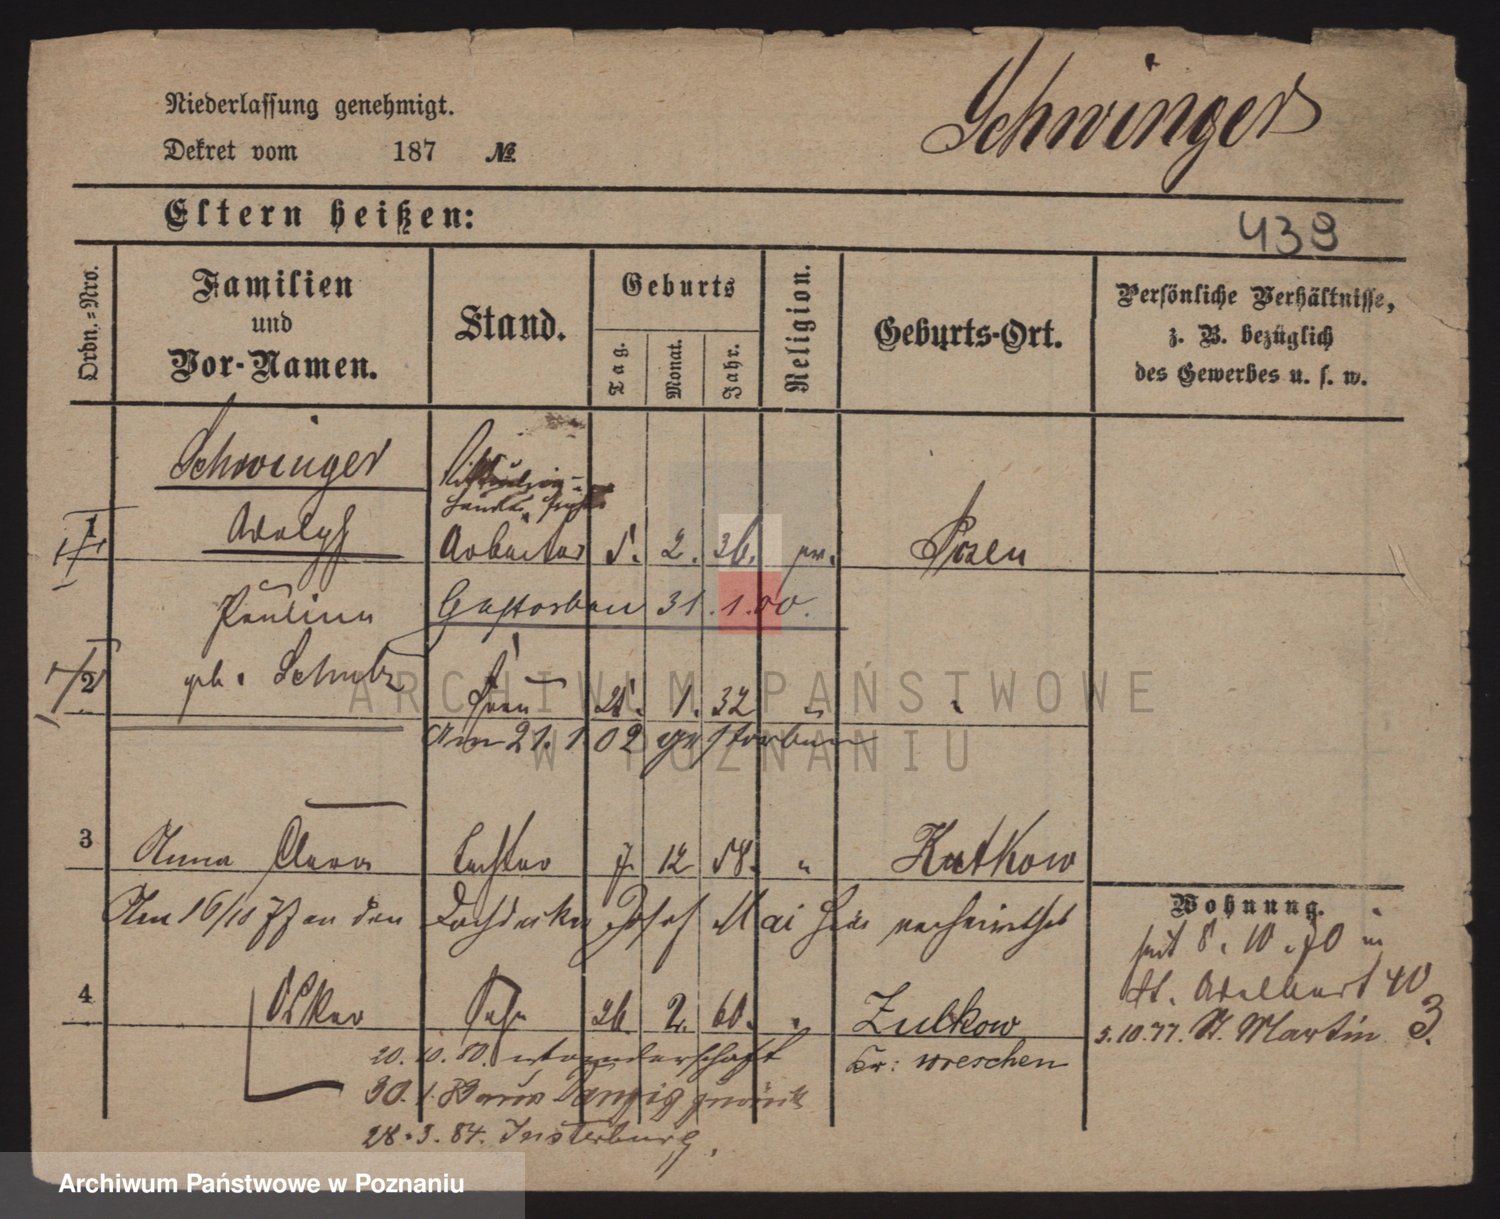 Schwinger
Niederlassung genehmigt.
Dekret vom 187 №
Eltern heißen:
439
Ordn.=Nro.
Familien
und
Vor-Namen.
Stand.
Geburts
Tag.
Monat.
Jahr.
Religion.
Geburts-Ort.
Persönliche Verhältnisse,
z. B. bezüglich
des Gewerbes u. s. w.
Schwinger
1 Adolph Arbeiter 5. 2. 36. ev. Posen
Gestorben 31.1.00.
Pauline
2 geb. Schulz Frau 25. 1. 32 " "
Am 21.1 02 gestorben
3 Anna Clara Tochter 7. 12 58. " Kutkow
Am 16/10 77 an den Dachdecker Josef Mai hier verheirathet
Wohnung.
seit 8. 10. 70 in
St. Adalbert 40
5.10.77. St. Martin 3.
4 Oskar Sohn 26. 2. 60. " Zulkow
Kr: Wreschen
20. 10. 80. Wanderschaft
30. 1. 83 aus Danzig zurück
28. 3. 84. Insterburg.
ARCHIWUM PAŃSTWOWE
W POZNANIU
Archiwum Państwowe w Poznaniu